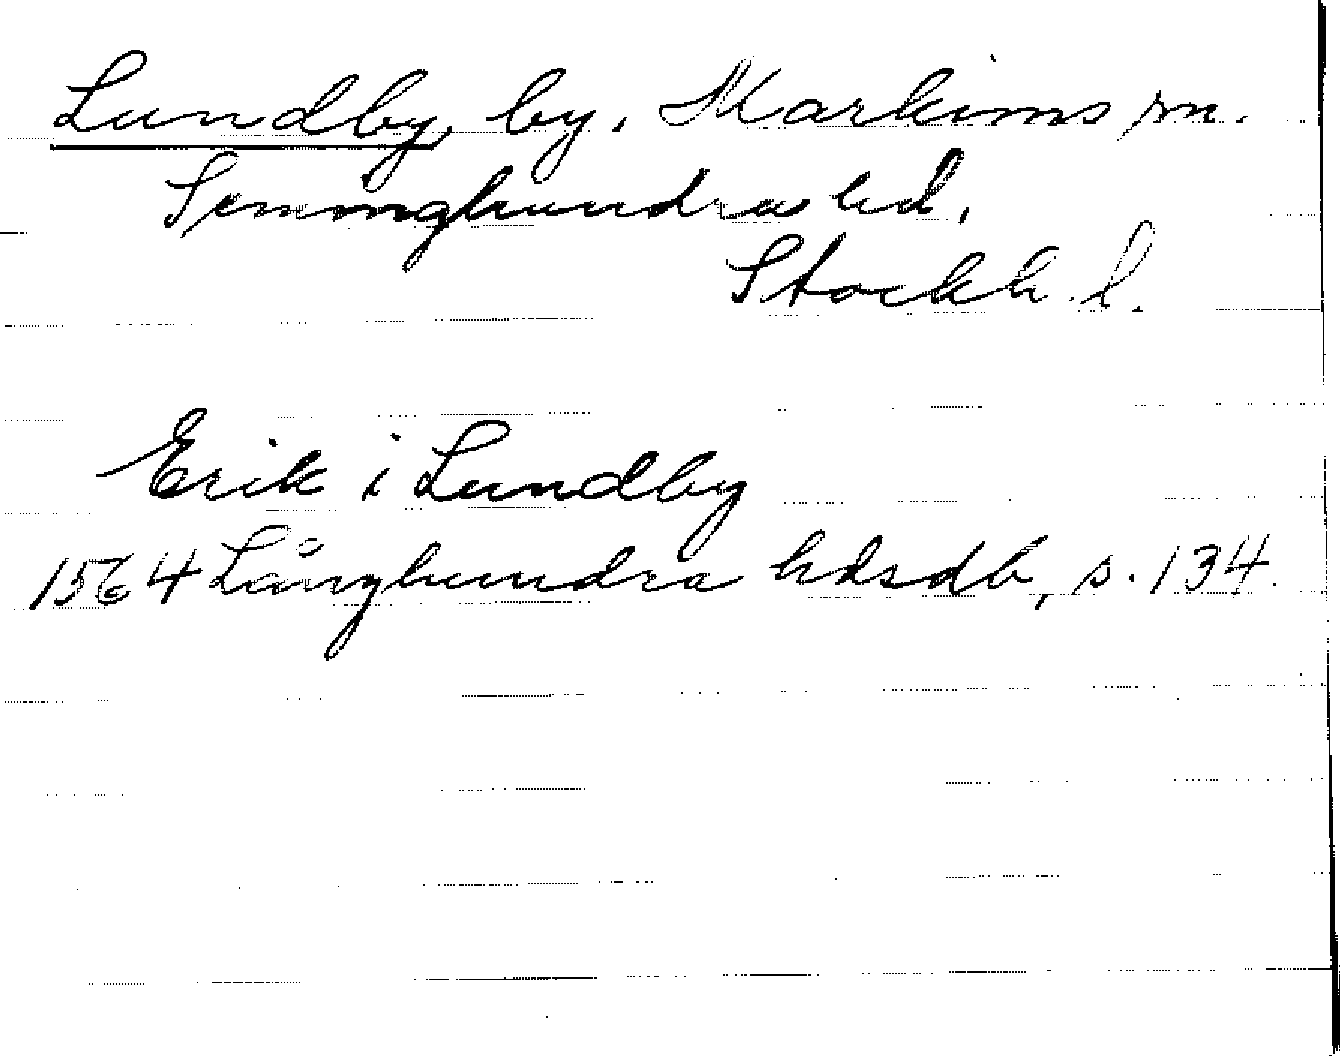 Lundby, by, Markims sn.
Seminghundra hd,
Stockh. l.
Erik i Lundby
1564 Långhundra hdsdb, s. 134.